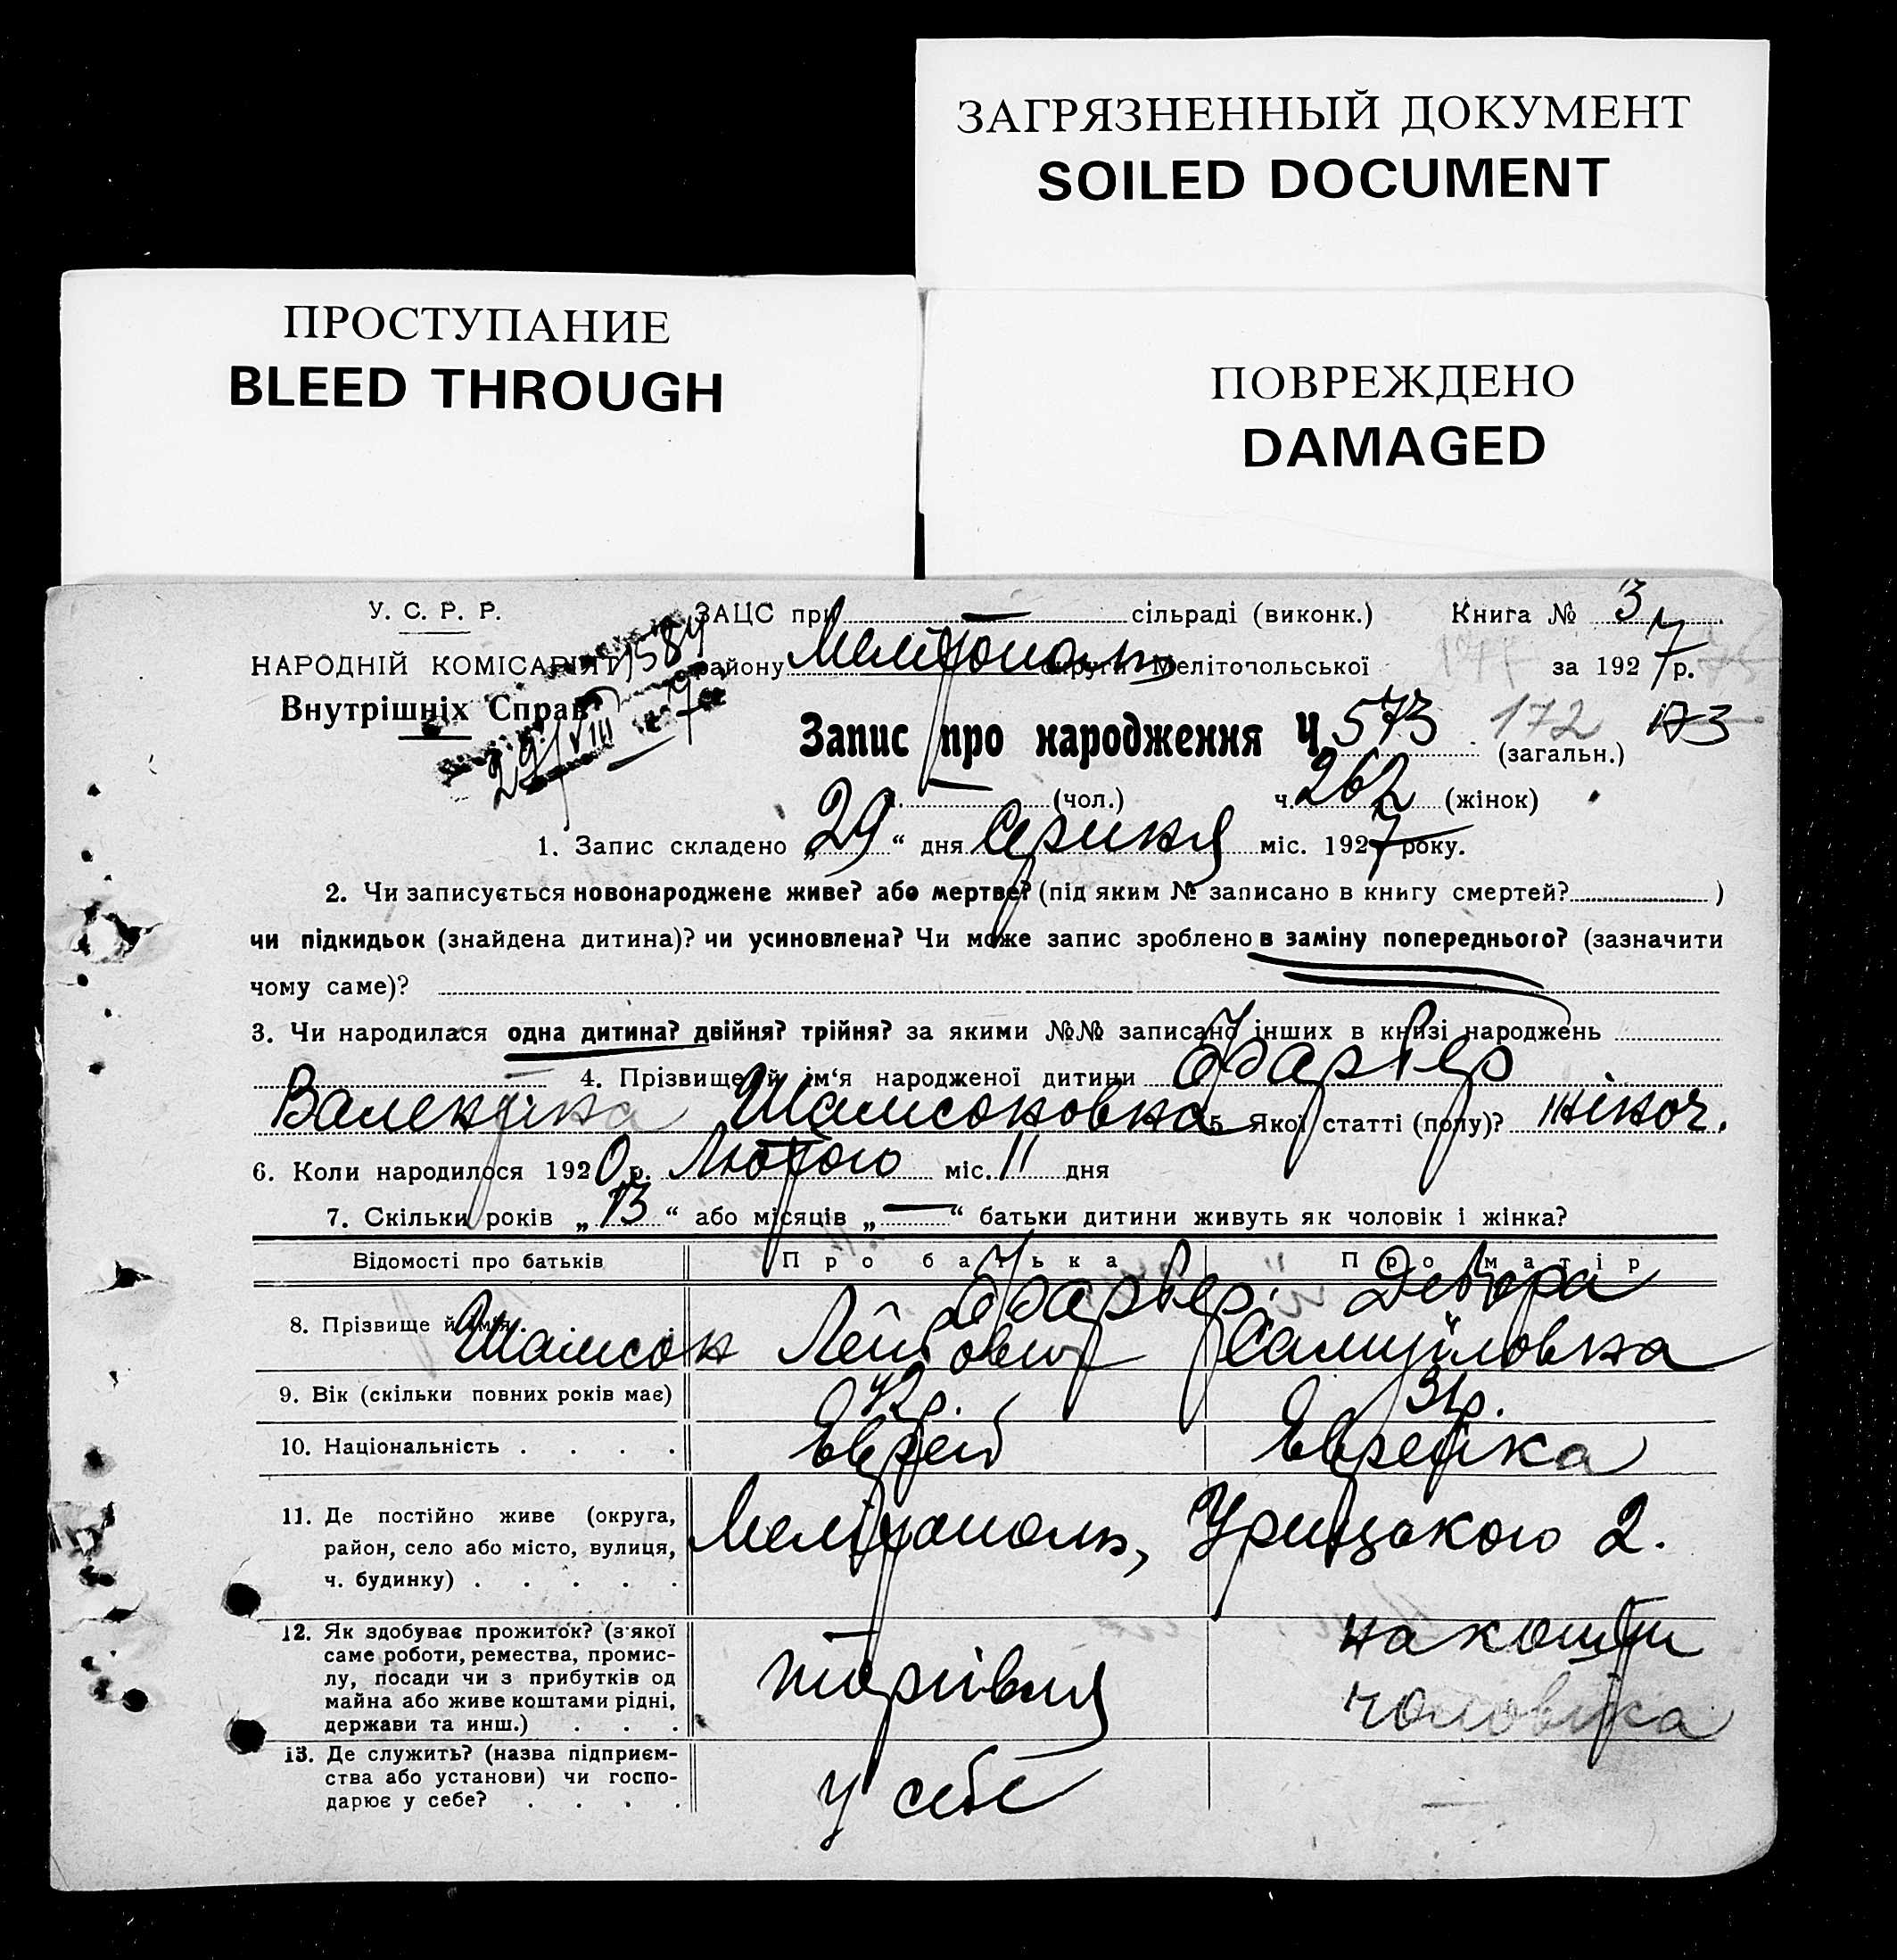 ЗАГРЯЗНЕННЫЙ ДОКУМЕНТ
SOILED DOCUMENT
ПРОСТУПАНИЕ
BLEED THROUGH
ПОВРЕЖДЕНО
DAMAGED
У. С. Р. Р.
НАРОДНІЙ КОМІСАРІЯТ
Внутрішніх Справ
1584
29/VIII 27
ЗАЦС при — сільраді (виконк.) Книга № 3
району Мелітополь округи Мелітопольської 177 за 1927 р.
Запис про народження Ч 573 172 173
(загальн.)
ч. — (чол.) ч. 262 (жінок)
1. Запис складено „29“ дня Серпня міс. 1927 року.
2. Чи записується новонароджене живе? або мертве? (під яким № записано в книгу смертей? )
чи підкидьок (знайдена дитина)? чи усиновлена? Чи може запис зроблено в заміну попереднього? (зазначити
чому саме)?
3. Чи народилася одна дитина? двійня? трійня? за якими №№ записано інших в книзі народжень
— 4. Прізвище й ім‘я народженої дитини Фарбер
Валентина Шамсоновна 5. Якої статті (полу)? жіноч.
6. Коли народилося 1920 р. Лютого міс. 11 дня
7. Скільки років „13“ або місяців „—“ батьки дитини живуть як чоловік і жінка?
Відомості про батьків Про батька Про матір
8. Прізвище й ім‘я. Фарбер. Девора
Шамсон Лейбович Самуїловна
9. Вік (скільки повних років має) 42 р. 31 р.
10. Національність . . . . Еврей Еврейка
11. Де постійно живе (округа,
район, село або місто, вулиця,
ч. будинку) . . . . . Мелітополь, Урицького 2.
12. Як здобуває прожиток? (з якої
саме роботи, ремества, промис-
лу, посади чи з прибутків од
майна або живе коштами рідні,
держави та инш.) . . . торгівля на кошти
чоловіка
13. Де служить? (назва підприєм-
ства або установи) чи госпо-
дарює у себе? . . . . у себе —